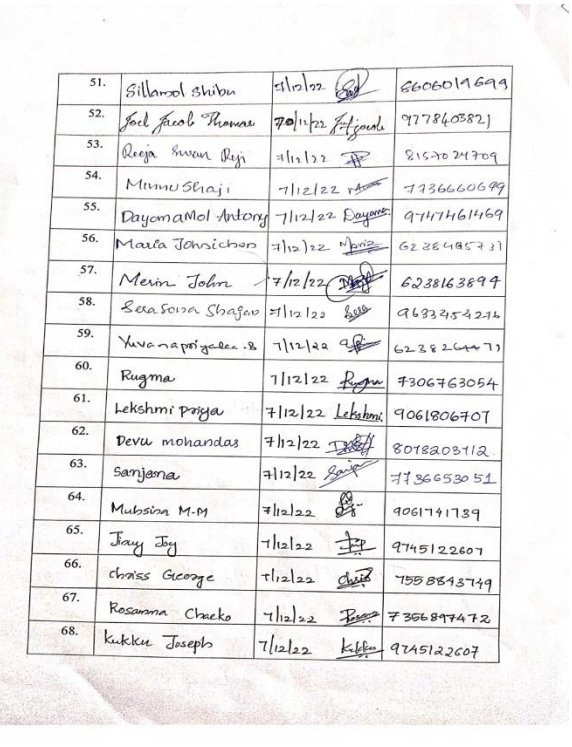 51. Sillamol Shibu 7/12/22 8606019699
52. Joel Jacob Thomas 7/12/22 Joel jacob 9778403821
53. Reeja Susan Reji 7/12/22 8157024709
54. Minnu Shaji 7/12/22 7736660699
55. DayanaMol Antony 7/12/22 Dayana 9747461469
56. Maria Johnichan 7/12/22 Maria 6238485731
57. Merin John 7/12/22 6238163894
58. Sera Sona Shajan 7/12/22 Sera 9633454216
59. Yuvanapriyalee.B 7/12/22
60. Rugma 7/12/22 Rugma 7306763054
61. Lekshmi priya 7/12/22 Lekshmi 9061806707
62. Devu mohandas 7/12/22 8078203712
63. Sanjana 7/12/22 7736653051
64. Mubsina M-M 7/12/22 9061741739
65. Jismy Joy 7/12/22 9745122607
66. Chriss George 7/12/22 Chriss 7558843749
67. Rosamma Chacko 7/12/22 7356897472
68. Kukku Joseph 7/12/22 Kukku 9745122607